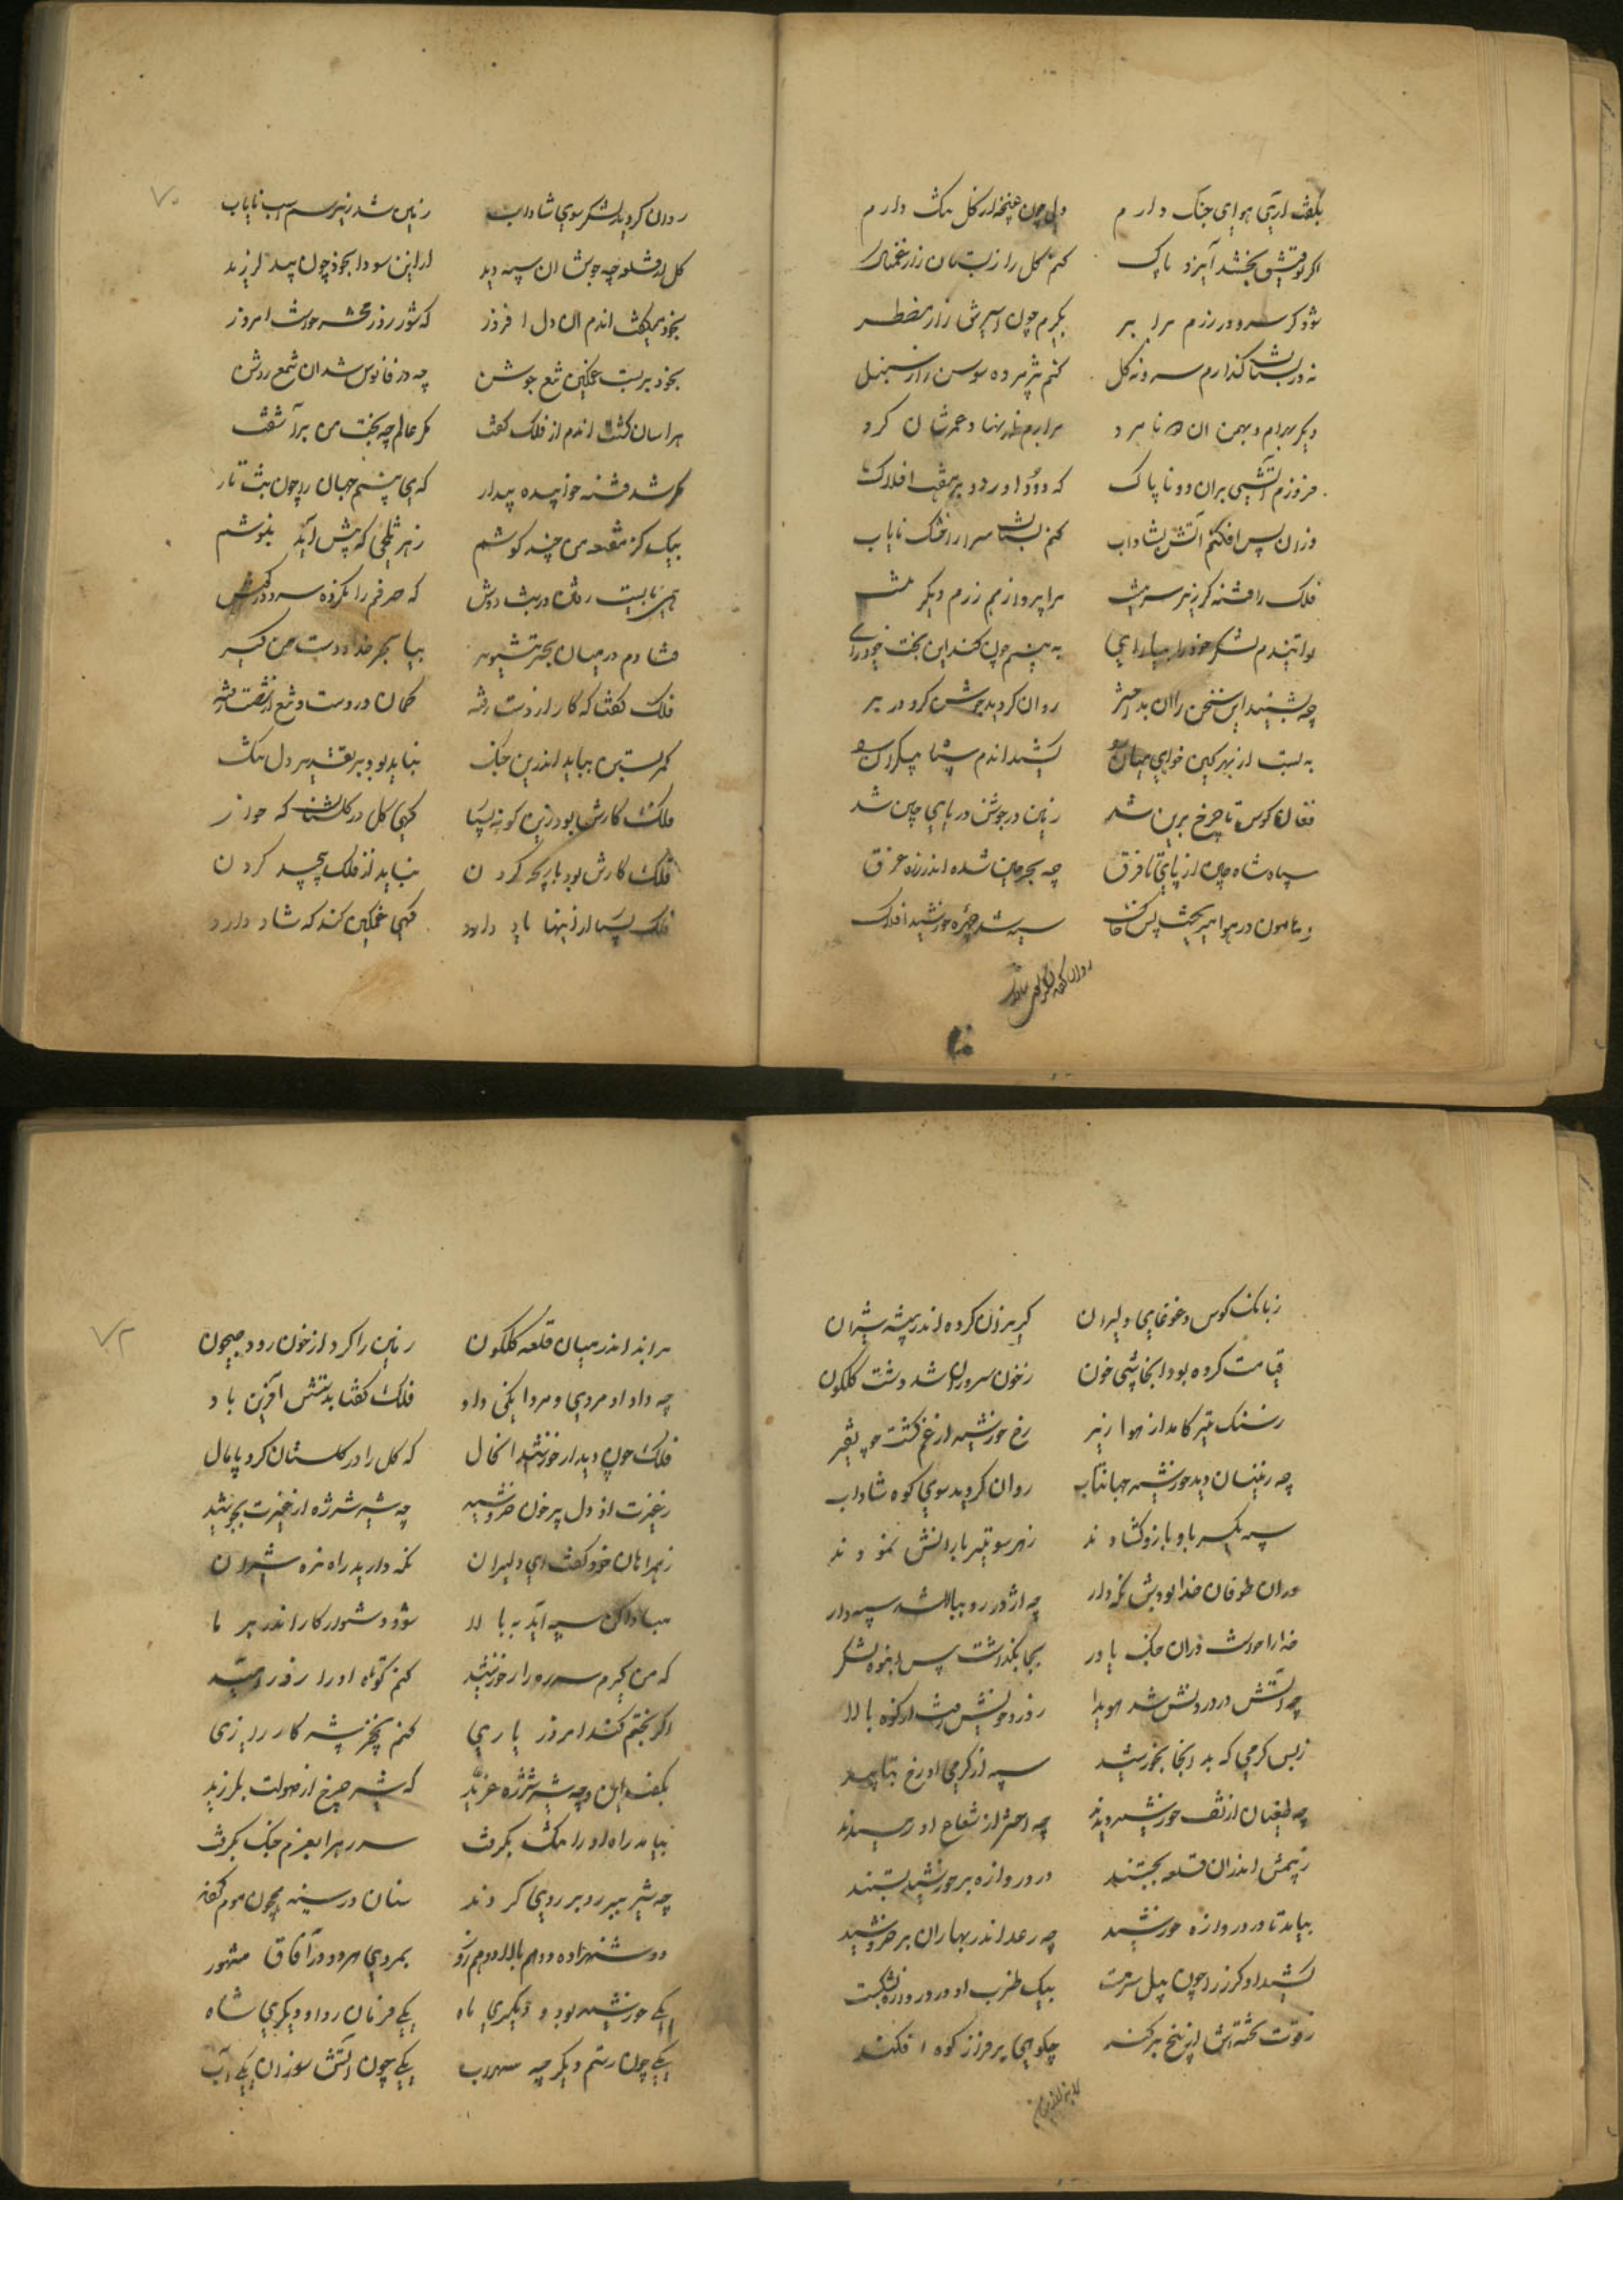 بگفت آری هوای جنگ دارم ولی چون غنچه از گل ننگ دارم
اگر توفیق بخشد ایزد پاک کنم گل را ز بستان زار غمناک
شود گر سرو در رزم برابر بگیرم چون اسیرش زار مضطر
نه در بستان گذارم سرو نه گل کنم پژمرده سوسن زار سنبل
دیگر بهرام و بهمن ان نامرد
فروزم آتشی بران دو ناپاک که دود او رود بر هفت افلاک
وزان پس افکنم آتش بشاداب کنم بستان سرا را خشک نایاب
فلک را فتنه کر زیر سر هست مرا پرواز بزم رزم دیگر هست
لوا بندم لشکر خود را بیارای به بینم چون کند این بخت خودرای
چه بشنید این سخن را ان بد اختر روان کردید جوشن کرد در بر
به بست از بهر کین خوابی میان کشید اندم سپاه بیکران
فغان کوس تا چرخ برین شد زمین در جوش دریای چین شد
سپاه شاه چین از پای تا فرق چه بحر چین شده اندر زره غرق
ز هامون در هوا میریخت پس خاک سیه شد چهره خورشید افلاک
روان کردید لشکر سوی شاداب
۷۰
روان کردید لشکر سوی شاداب زمین شد زیر سم اسب نایاب
گل از قلعه چه جوش ان سپه دید از این سودا بخود چون بید لرزید
بخود میگفت اندم ان دل افروز که شور روز محشر هست امروز
بخود بر بست غمگین تیغ جوشن چه در فانوس شد ان شمع روشن
هراسان گشت اندم از فلک گفت مگر عالم چه بخت من برآشفت
مگر شد فتنه خوابیده بیدار که می بینم جهان را چون شب تار
بیک گز مقنعه من چند کوشم زهر تلخی که پیش آید بنوشم
فتادم در میان بحر تشویر بیا بحر خدا دست من گیر
فلک گفتا که کار از دست رفته کمان در دست و تیغ از شصت رفته
کمر بستن بباید اندرین جنگ نباید بود بر تقدیر دل تنگ
فلک کارش بود زین گونه بسیار گهی گل در گلستان که خوار
فلک کارش بود بازیچه کردن نباید از فلک پیچید گردن
فلک بسیار از اینها یاد دارد گهی غمگین کند که شاد دارد
ز بانک کوس و غوغای دلیران گریزان کرده اندر بیشه شیران
قیامت کرده بود انجا پی خون ز خون سروران شد دشت گلگون
ز سنک تیر کامد از هوا زیر رخ خورشید از غم گشت چو قیر
چه زینسان دید خورشید جهانتاب روان کردید سوی کوه شاداب
سپه یکسر با و بازو گشادند زهر سو تیر بارانش نمودند
دران طوفان خدا بودش نگه دار چه اژدر رو ببالا شد سپه دار
خدا را خواست دران جنگ یاور بجا بگذاشت پس انبوه لشکر
چه آتش در درونش شد هویدا ز درد خویش رفت از کوه بالا
ز بس گرمی که بد انجا بخورشید سپه از گرمی او رخ بتابید
چه طغیان از تف خورشید دیدند چه اختر از شعاع او رمیدند
ز بیمش اندران قلعه بجستند در دروازه بر خورشید بستند
بیامد تا در دروازه خورشید چه رعد اندر بهاران بر خروشید
کشید او گرز را چون پیل سرمست بیک ضرب او در دروازه بشکست
ز قوت تخته اش از بیخ برکند چکوهی بر فراز کوه افکند
۷۲
براند اندر میان قلعه گلگون زمین را کرد از خون رود جیحون
چه داد او مردی و مردانگی داد فلک گفتا بدستش آفرین باد
فلک چون دید از خورشید انحال که گل را در گلستان کرد پامال
ز غیرت از دل پر خون خروشید چه شیر شرزه از غیرت بجوشید
ز همراهان خود گفت ای دلیران نگه دارید راه نره شیران
مبادا کن سپه آید به بالا شود دشوار کار اندر بر ما
که من گیرم سر ره را ز خورشید کنم کوتاه او را از در امید
اگر بختم کند امروز یاری کنم بخورشید کار زاری
بگفت این و چه شیر شرزه غرید که شیر چرخ از صولت بلرزید
بیامد راه او را تنگ بگرفت سر ره را بعزم جنگ بگرفت
چه شیر ببر رو بر روی کردند سنان در سینه چون موم
دو شهزاده دو هم بالا دو هم زور بمردی هر دو در آفاق مشهور
یکی خورشید بود و دیگری ماه یکی فرمان روا و دیگری شاه
یکی چون رستم و دیگر چه سهراب یکی چون آتش سوزان یکی آب